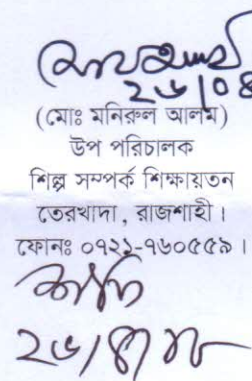 ২৬/০৪
(মোঃ মনিরুল আলম)
উপ পরিচালক
শিল্প সম্পর্ক শিক্ষায়তন
তেরখাদা, রাজশাহী।
ফোনঃ ০৭২১-৭৬০৫৫৯।